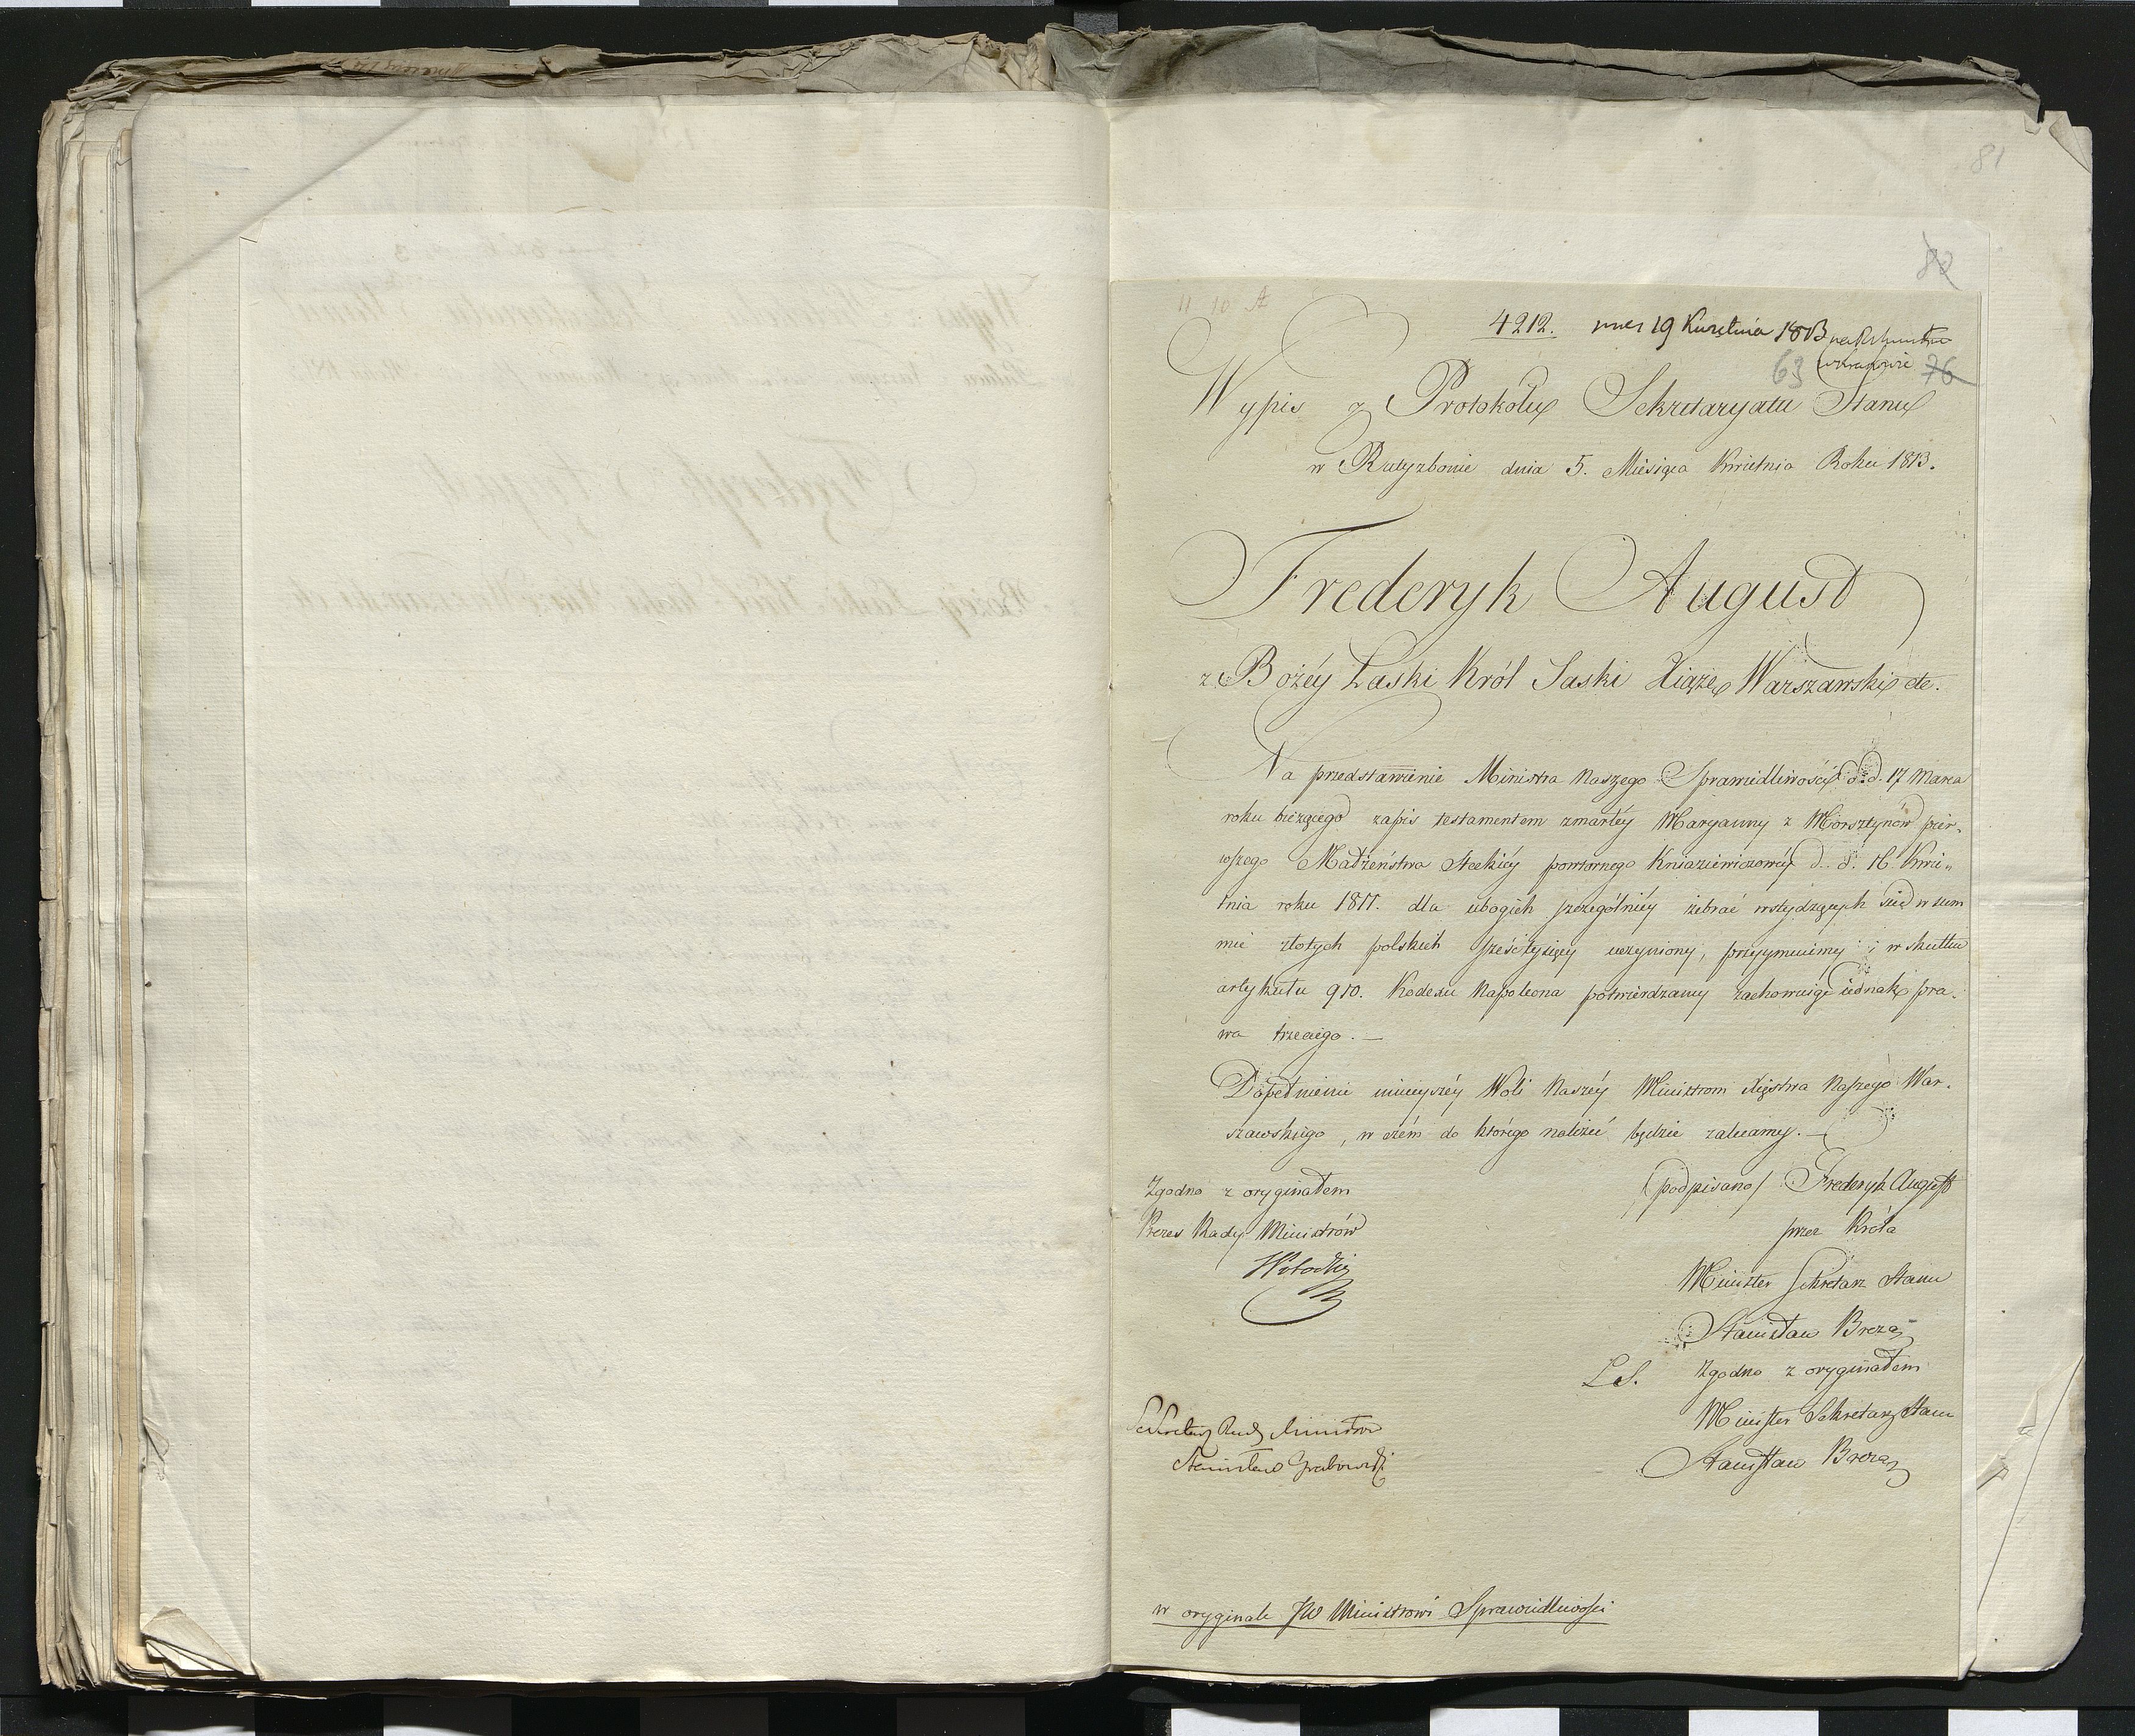 81
80
4212. 19 Kwietnia 1813
w Krakowie 76
63
Wypis z Protokółu Sekretaryatu Stanu
w Ratyzbonie dnia 5. Miesiąca Kwietnia Roku 1813.
Frederyk August
z Bożéy Łaski Król Saski Xiążę Warszawski etc.
Na przedstawienie Ministra Naszego Sprawiedliwości d. d. 17 Marca
roku bieżącego zapis testamentem zmarłéy Maryanny z Morsztynów pier-
wszego Małżeństwa Steckiéy powtórnego Kniaziewiczowéy d. d. 16 Kwie-
tnia roku 1811. dla ubogich szczególniéy żebrać wstydzących się w sum
mie złotych polskich sześć tysięcy uczyniony, przyymuiemy i w skutku
artykułu 910. Kodexu Napoleona potwierdzamy zachowuiąc iednak pra-
wa trzeciego. —
Dopełnienie ninieyszéy Woli Naszéy Ministrom Xięstwa Naszego War-
szawskiego, w czém do którego należeć będzie zalecamy. —
Zgodno z oryginałem
Prezes Rady Ministrów
(podpisano) Frederyk August
przez Króla
Minister Sekretarz Stanu
Stanisław Breza
L.S. Zgodno z oryginałem
Minister Sekretarz Stanu
Stanisław Breza
Sekretarz Rady Ministrów
Stanisław Grabowski
w oryginale JW Ministrowi Sprawiedliwości